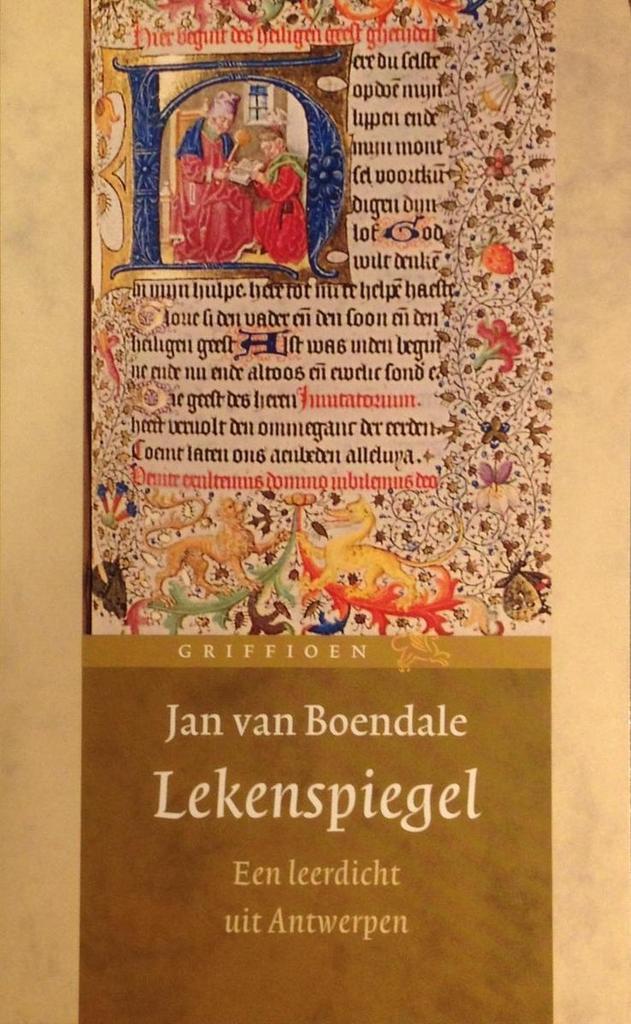 Hier begint des heiligen geest ghetiden
ere du selste
opdoē mijn
lippen ende
mijn mont
sel voortkū
digen dijn
lof God
wilt denkē
in mijn hulpe here tot mi te helpē haeste
Glorie si den vader eñ den soon eñ den
heiligen geest Alst was inden begin
ne ende nu ende altoos eñ ewelic sond e
De geest des heren Invitatorium.
heeft vervolt den ommeganc der eerden
Coemt laten ons aenbeden alleluya.
Venite exultemus domino iubilemus deo
GRIFFIOEN
Jan van Boendale
Lekenspiegel
Een leerdicht
uit Antwerpen